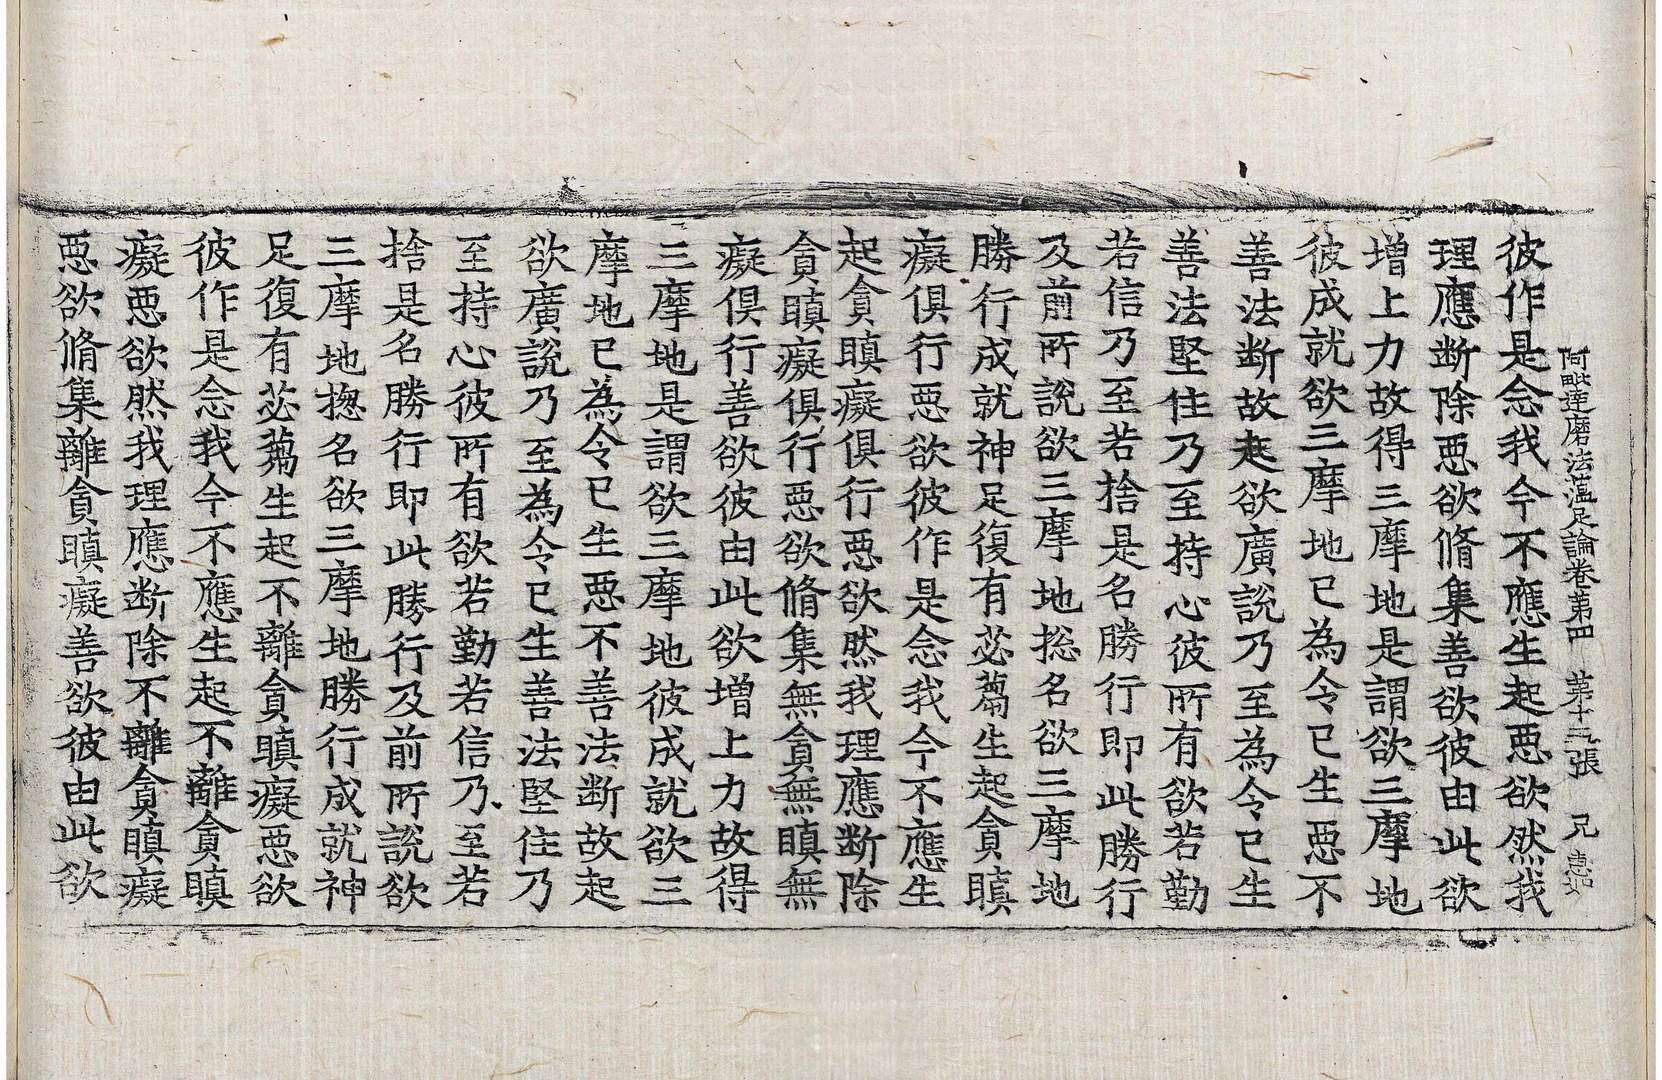 阿毗達磨法蘊足論卷第四 第十三張 兄 惠如
彼作是念我今不應生起惡欲然我
理應断除惡欲脩集善欲彼由此欲
增上力故得三摩地是謂欲三摩地
彼成就欲三摩地已為令已生惡不
善法断故起欲廣說乃至為令已生
善法堅住乃至持心彼所有欲若勤
若信乃至若捨是名勝行即此勝行
及前所說欲三摩地捴名欲三摩地
勝行成就神足復有苾蒭生起貪瞋
癡俱行惡欲彼作是念我今不應生
起貪瞋癡俱行惡欲然我理應断除
貪瞋癡俱行惡欲脩集無貪無瞋無
癡俱行善欲彼由此欲增上力故得
三摩地是謂欲三摩地彼成就欲三
摩地已為令已生惡不善法断故起
欲廣說乃至為令已生善法堅住乃
至持心彼所有欲若勤若信乃至若
捨是名勝行即此勝行及前所說欲
三摩地捴名欲三摩地勝行成就神
足復有苾蒭生起不離貪瞋癡惡欲
彼作是念我今不應生起不離貪瞋
癡惡欲然我理應断除不離貪瞋癡
惡欲脩集離貪瞋癡善欲彼由此欲